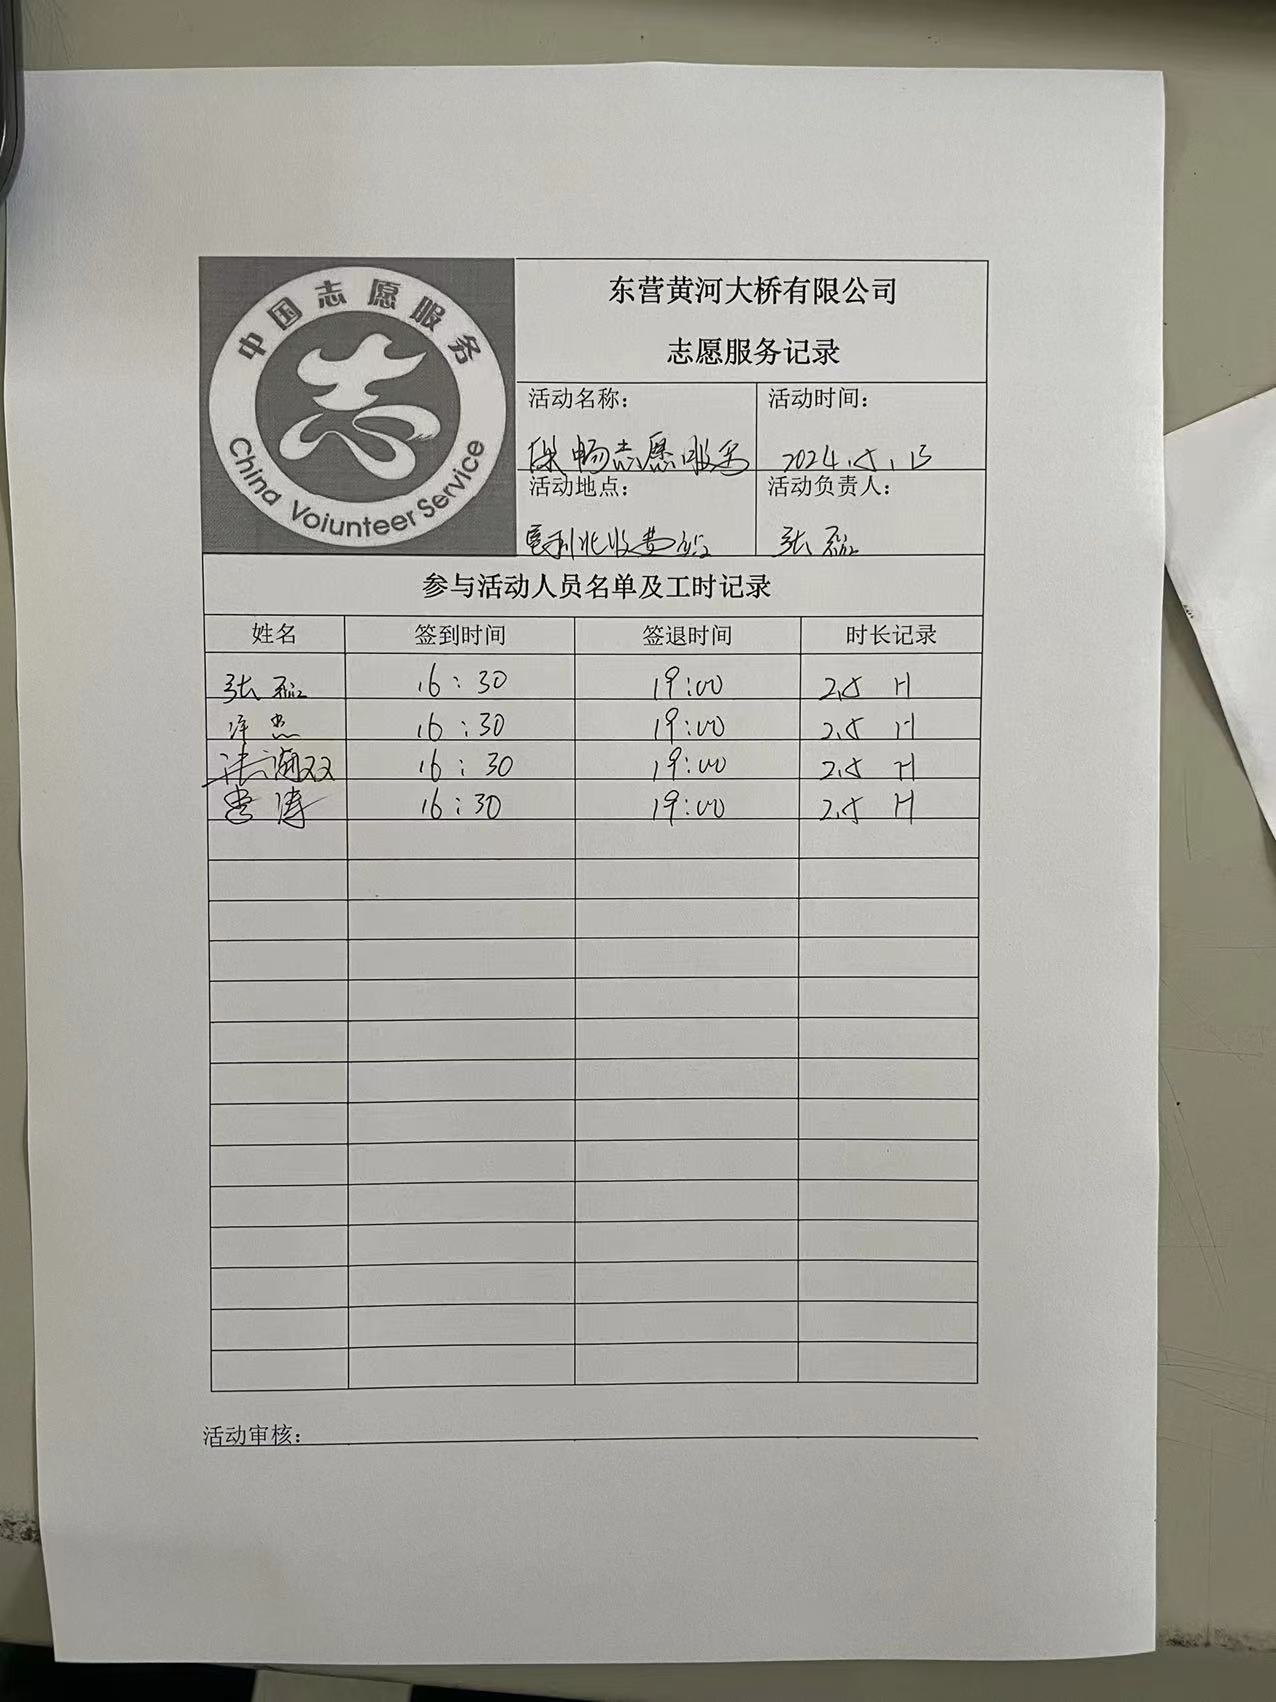 中国志愿服务
China Voiunteer Service
东营黄河大桥有限公司
志愿服务记录
活动名称：
活动时间：
保畅志愿服务
2024.5.13
活动地点：
活动负责人：
垦利北收费站
张磊
参与活动人员名单及工时记录
姓名 签到时间 签退时间 时长记录
张磊 16:30 19:00 2.5 H
16:30 19:00 2.5 H
16:30 19:00 2.5 H
16:30 19:00 2.5 H
活动审核：